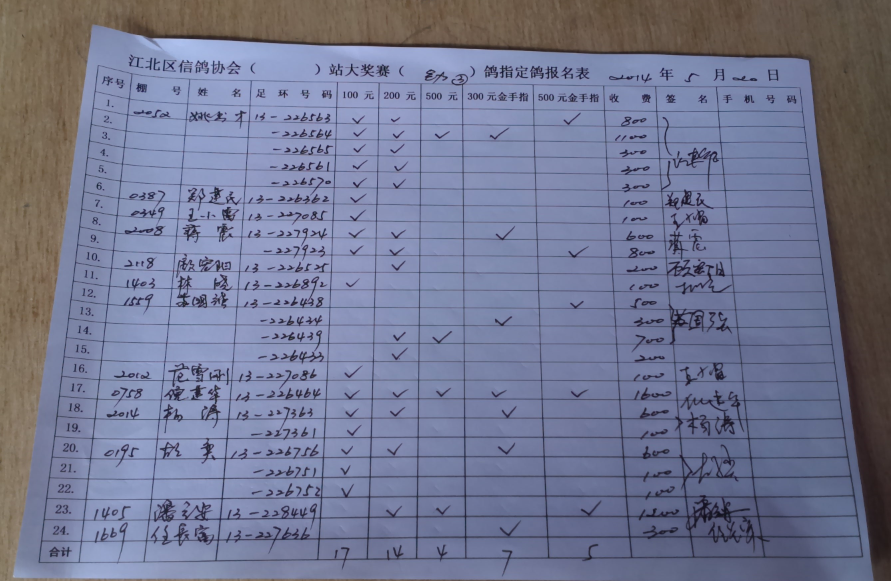 江北区信鸽协会（ ）站大奖赛（ ）鸽指定鸽报名表 2014 年 5 月 20 日
序号 棚 号 姓 名 足 环 号 码 100 元 200 元 500 元 300 元金手指 500 元金手指 收 费 签 名 手 机 号 码
1. 2052 13-226563 ✓ ✓ ✓ 800
2. -226564 ✓ ✓ ✓ ✓ 1100
3. -226565 ✓ ✓ 300
4. -226561 ✓ ✓ 300
5. -226570 ✓ ✓ 300
6. 0387 郑建民 13-226362 ✓ 100 郑建民
7. 0349 王小雷 13-227085 ✓ 100
8. 2008 蒋震 13-227924 ✓ ✓ ✓ 600 蒋震
9. -227923 ✓ ✓ ✓ 800
10. 2118 13-226525 ✓ 200
11. 1403 林 13-226892 ✓ 100
12. 1559 13-226438 ✓ 500
13. -226434 ✓ 300
14. -226439 ✓ ✓ 700
15. -226433 ✓ 200
16. 2012 范雪刚 13-227086 ✓ 100
17. 0758 13-226464 ✓ ✓ ✓ ✓ ✓ 1600
18. 2014 杨涛 13-227363 ✓ ✓ ✓ 600 杨涛
19. -227361 ✓ 100
20. 0195 13-226756 ✓ ✓ ✓ 600
21. -226751 ✓ 100
22. -226752 ✓ 100
23. 1405 13-228449 ✓ ✓ ✓ 1200
24. 1669 任长富 13-227636 ✓ 300
合计 17 14 4 7 5